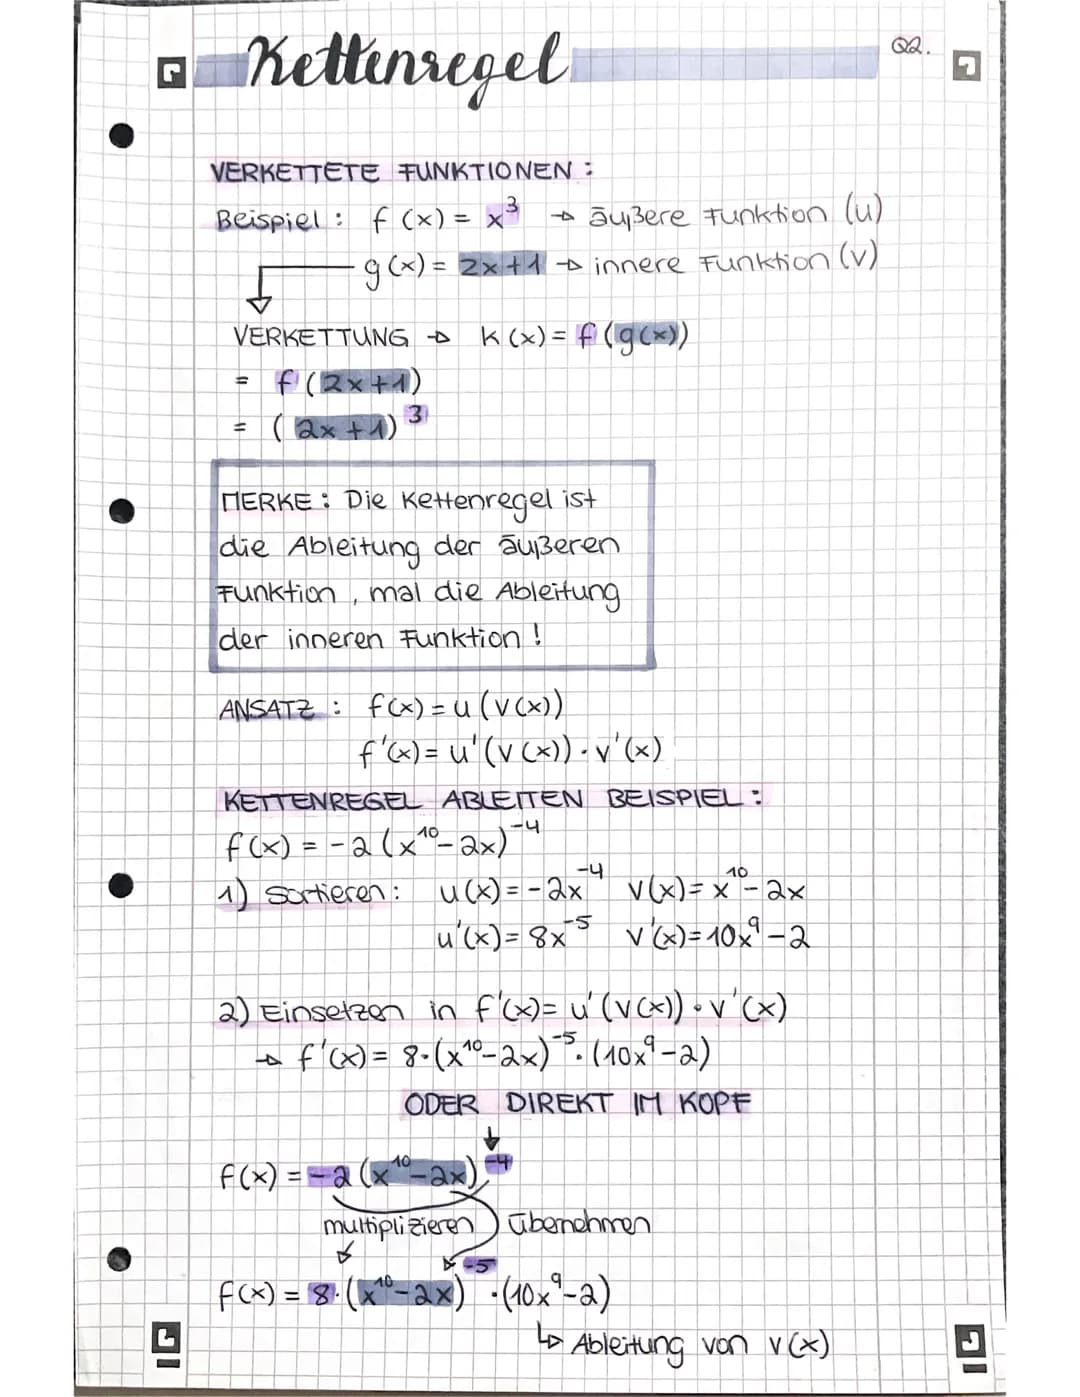 Kettenregel
Q2.
VERKETTETE FUNKTIONEN :
Beispiel : f (x) = x³ → äußere Funktion (u)
g (x) = 2x+1 → innere Funktion (v)
VERKETTUNG → k (x) = f (g(x))
= f (2x+1)
= ( 2x+1)³
MERKE : Die Kettenregel ist
die Ableitung der äußeren
Funktion , mal die Ableitung
der inneren Funktion !
ANSATZ : f(x) = u (v(x))
f'(x) = u' (v(x)) · v'(x)
KETTENREGEL ABLEITEN BEISPIEL :
f(x) = -2 (x¹⁰-2x)⁻⁴
1) Sortieren : u(x) = -2x⁻⁴ v(x) = x¹⁰-2x
u'(x) = 8x⁻⁵ v'(x) = 10x⁹-2
2) Einsetzen in f'(x) = u' (v(x)) · v'(x)
→ f'(x) = 8·(x¹⁰-2x)⁻⁵·(10x⁹-2)
ODER DIREKT IM KOPF
f(x) = -2 (x¹⁰-2x)⁻⁴
multiplizieren übernehmen
f(x) = 8·(x¹⁰-2x)⁻⁵ ·(10x⁹-2)
↳ Ableitung von v(x)